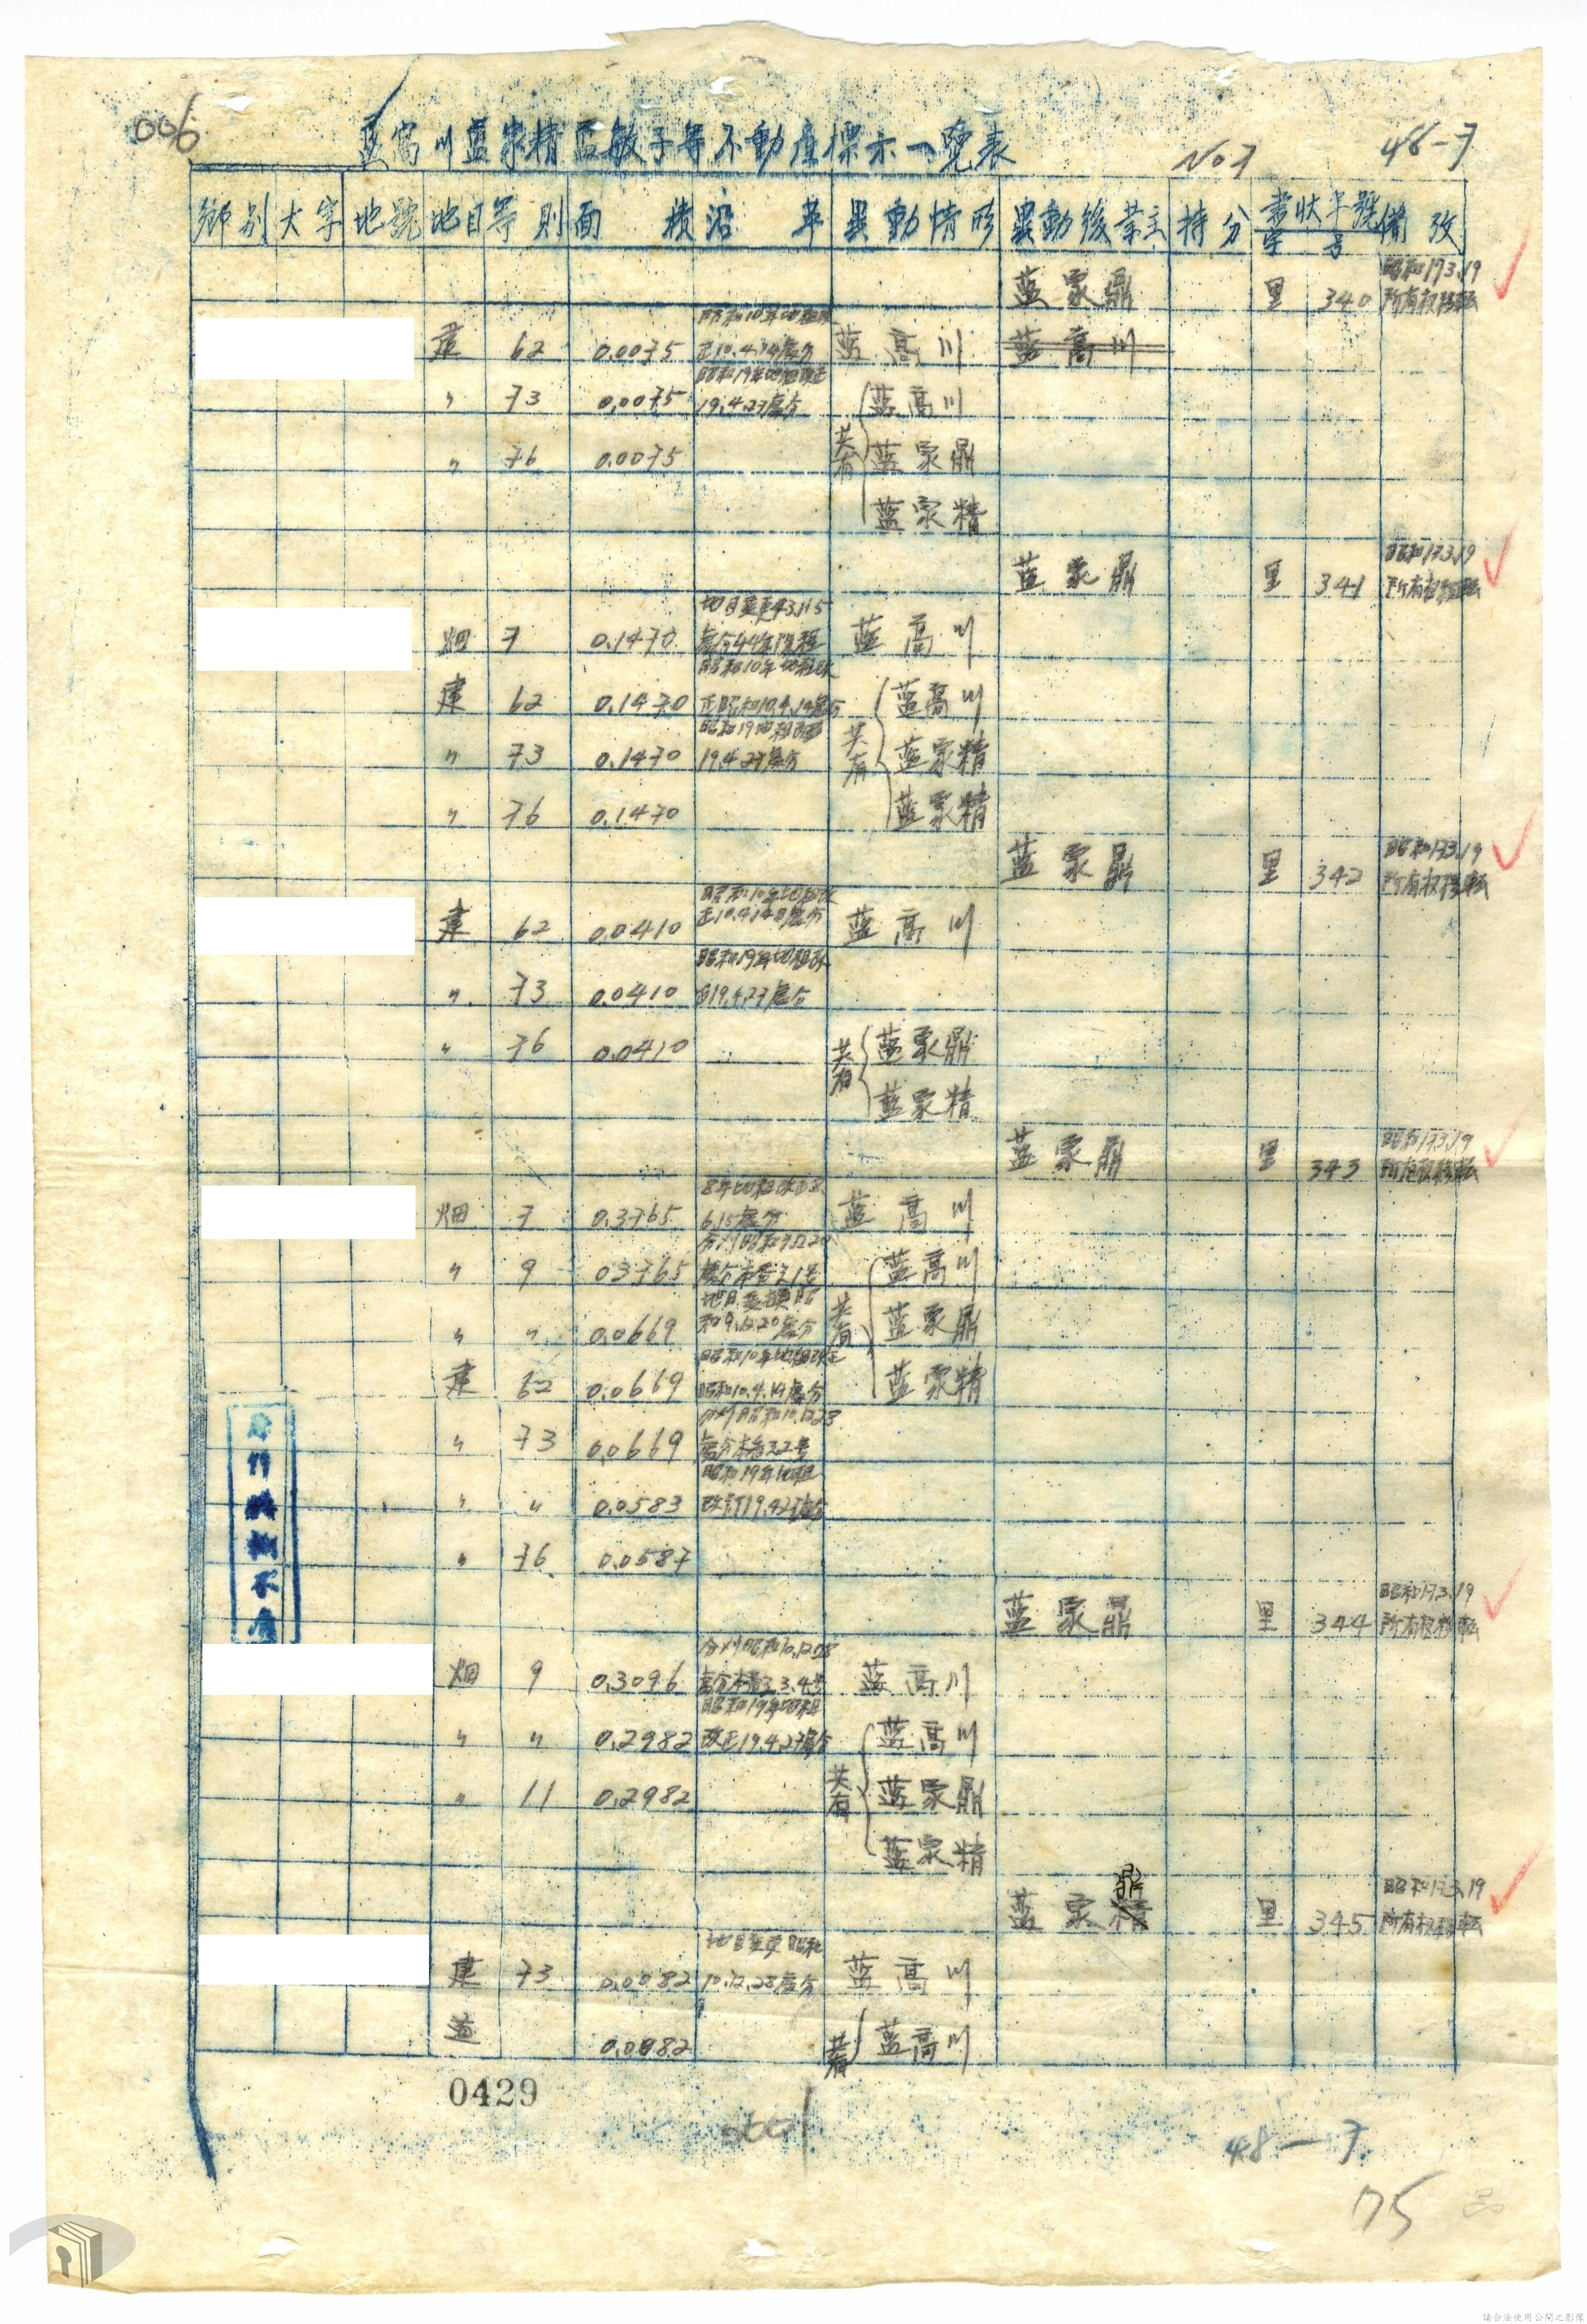 006
藍高川藍家精藍敏子等不動産標示一覽表 No7 46-7
鄉別 大字 地號 地目 等則 面積 沿革 異動情形 異動後業主 持分 書狀字號 備攷
字 号
藍家鼎 里 340 昭和17.3.19
所有权移転
昭和10年地租改
建 62 0.0075 正10.4.14處分 藍高川 藍高川
昭和19年地租改正
〃 73 0.0075 19.4.27處分 藍高川
〃 76 0.0075 共有 藍家鼎
藍家精
藍家鼎 里 341 昭和17.3.19
所有权移転
地目变更43.11.5
畑 7 0.1470 藍高川
昭和10年地租改
建 62 0.1470 正昭和10.4.14處分 藍高川
〃 73 0.1470 19.4.27處分 共有 藍家精
〃 76 0.1470 藍家精
藍家鼎 里 342 昭和17.3.19
所有权移転
昭和10年地租改
建 62 0.0410 正10.4.14處分 藍高川
昭和19年地租改
〃 73 0.0410 正19.4.27處分
〃 76 0.0410 共有 藍家鼎
藍家精
藍家鼎 里 343 昭和17.3.19
所有权移転
8年地租改正8.
畑 7 0.3765 6.15處分 藍高川
分割昭和9.12.20
〃 9 0.3765 處分本番之1号 藍高川
地目变換昭
〃 〃 0.0669 和9.12.20處分 共有 藍家鼎
昭和10年地租改正
建 62 0.0669 昭和10.4.14處分 藍家精
分割昭和10.12.28
〃 73 0.0669 處分本番之2号
昭和19年地租
〃 〃 0.0583 改訂19.4.27處分
〃 76 0.0587
藍家鼎 里 344 昭和17.3.19
所有权移転
分割昭和10.12.28
畑 9 0.3096 處分本番之3.4号 藍高川
昭和19年地租
〃 〃 0.2982 改正19.4.27處分 藍高川
〃 11 0.2982 共有 藍家鼎
藍家精
鼎
藍家精 里 345 昭和17.3.19
所有权移転
地目变更昭和
建 73 0.0082 10.12.28處分 藍高川
道 0.0082 共有 藍高川
0429
48-7
75
請合法使用公開之影像